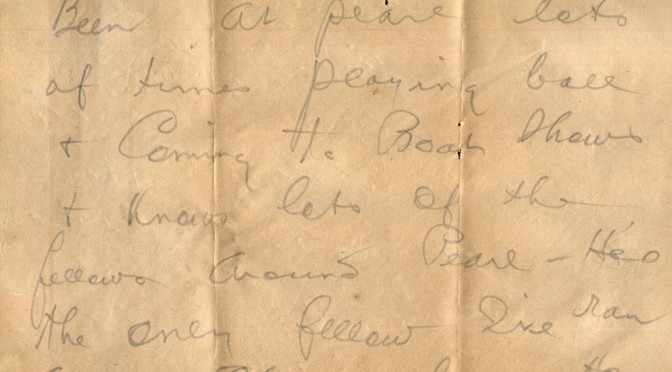 Been at pearl lots
of times playing ball
+ Coming to Boat Shows
+ Knows lots of the
fellows around Pearl - He's
the only fellow I've ran